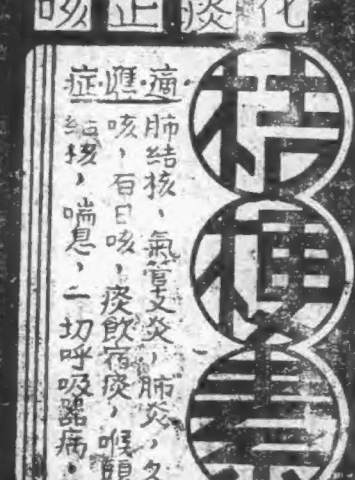 化痰止咳
桔梗素
適 肺結核、氣管支炎，肺炎，
應 咳，百日咳，痰飲宿痰，喉頭
症 結核，喘息，一切呼吸器病，